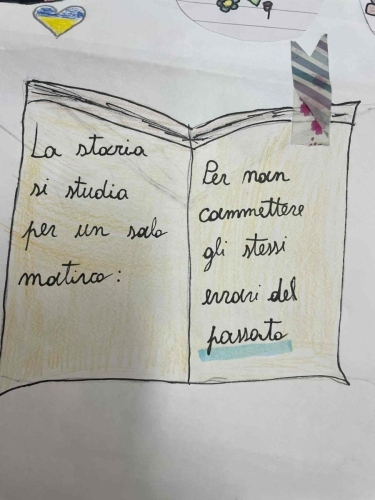 La storia
si studia
per un solo
motivo:
Per non
commettere
gli stessi
errori del
passato